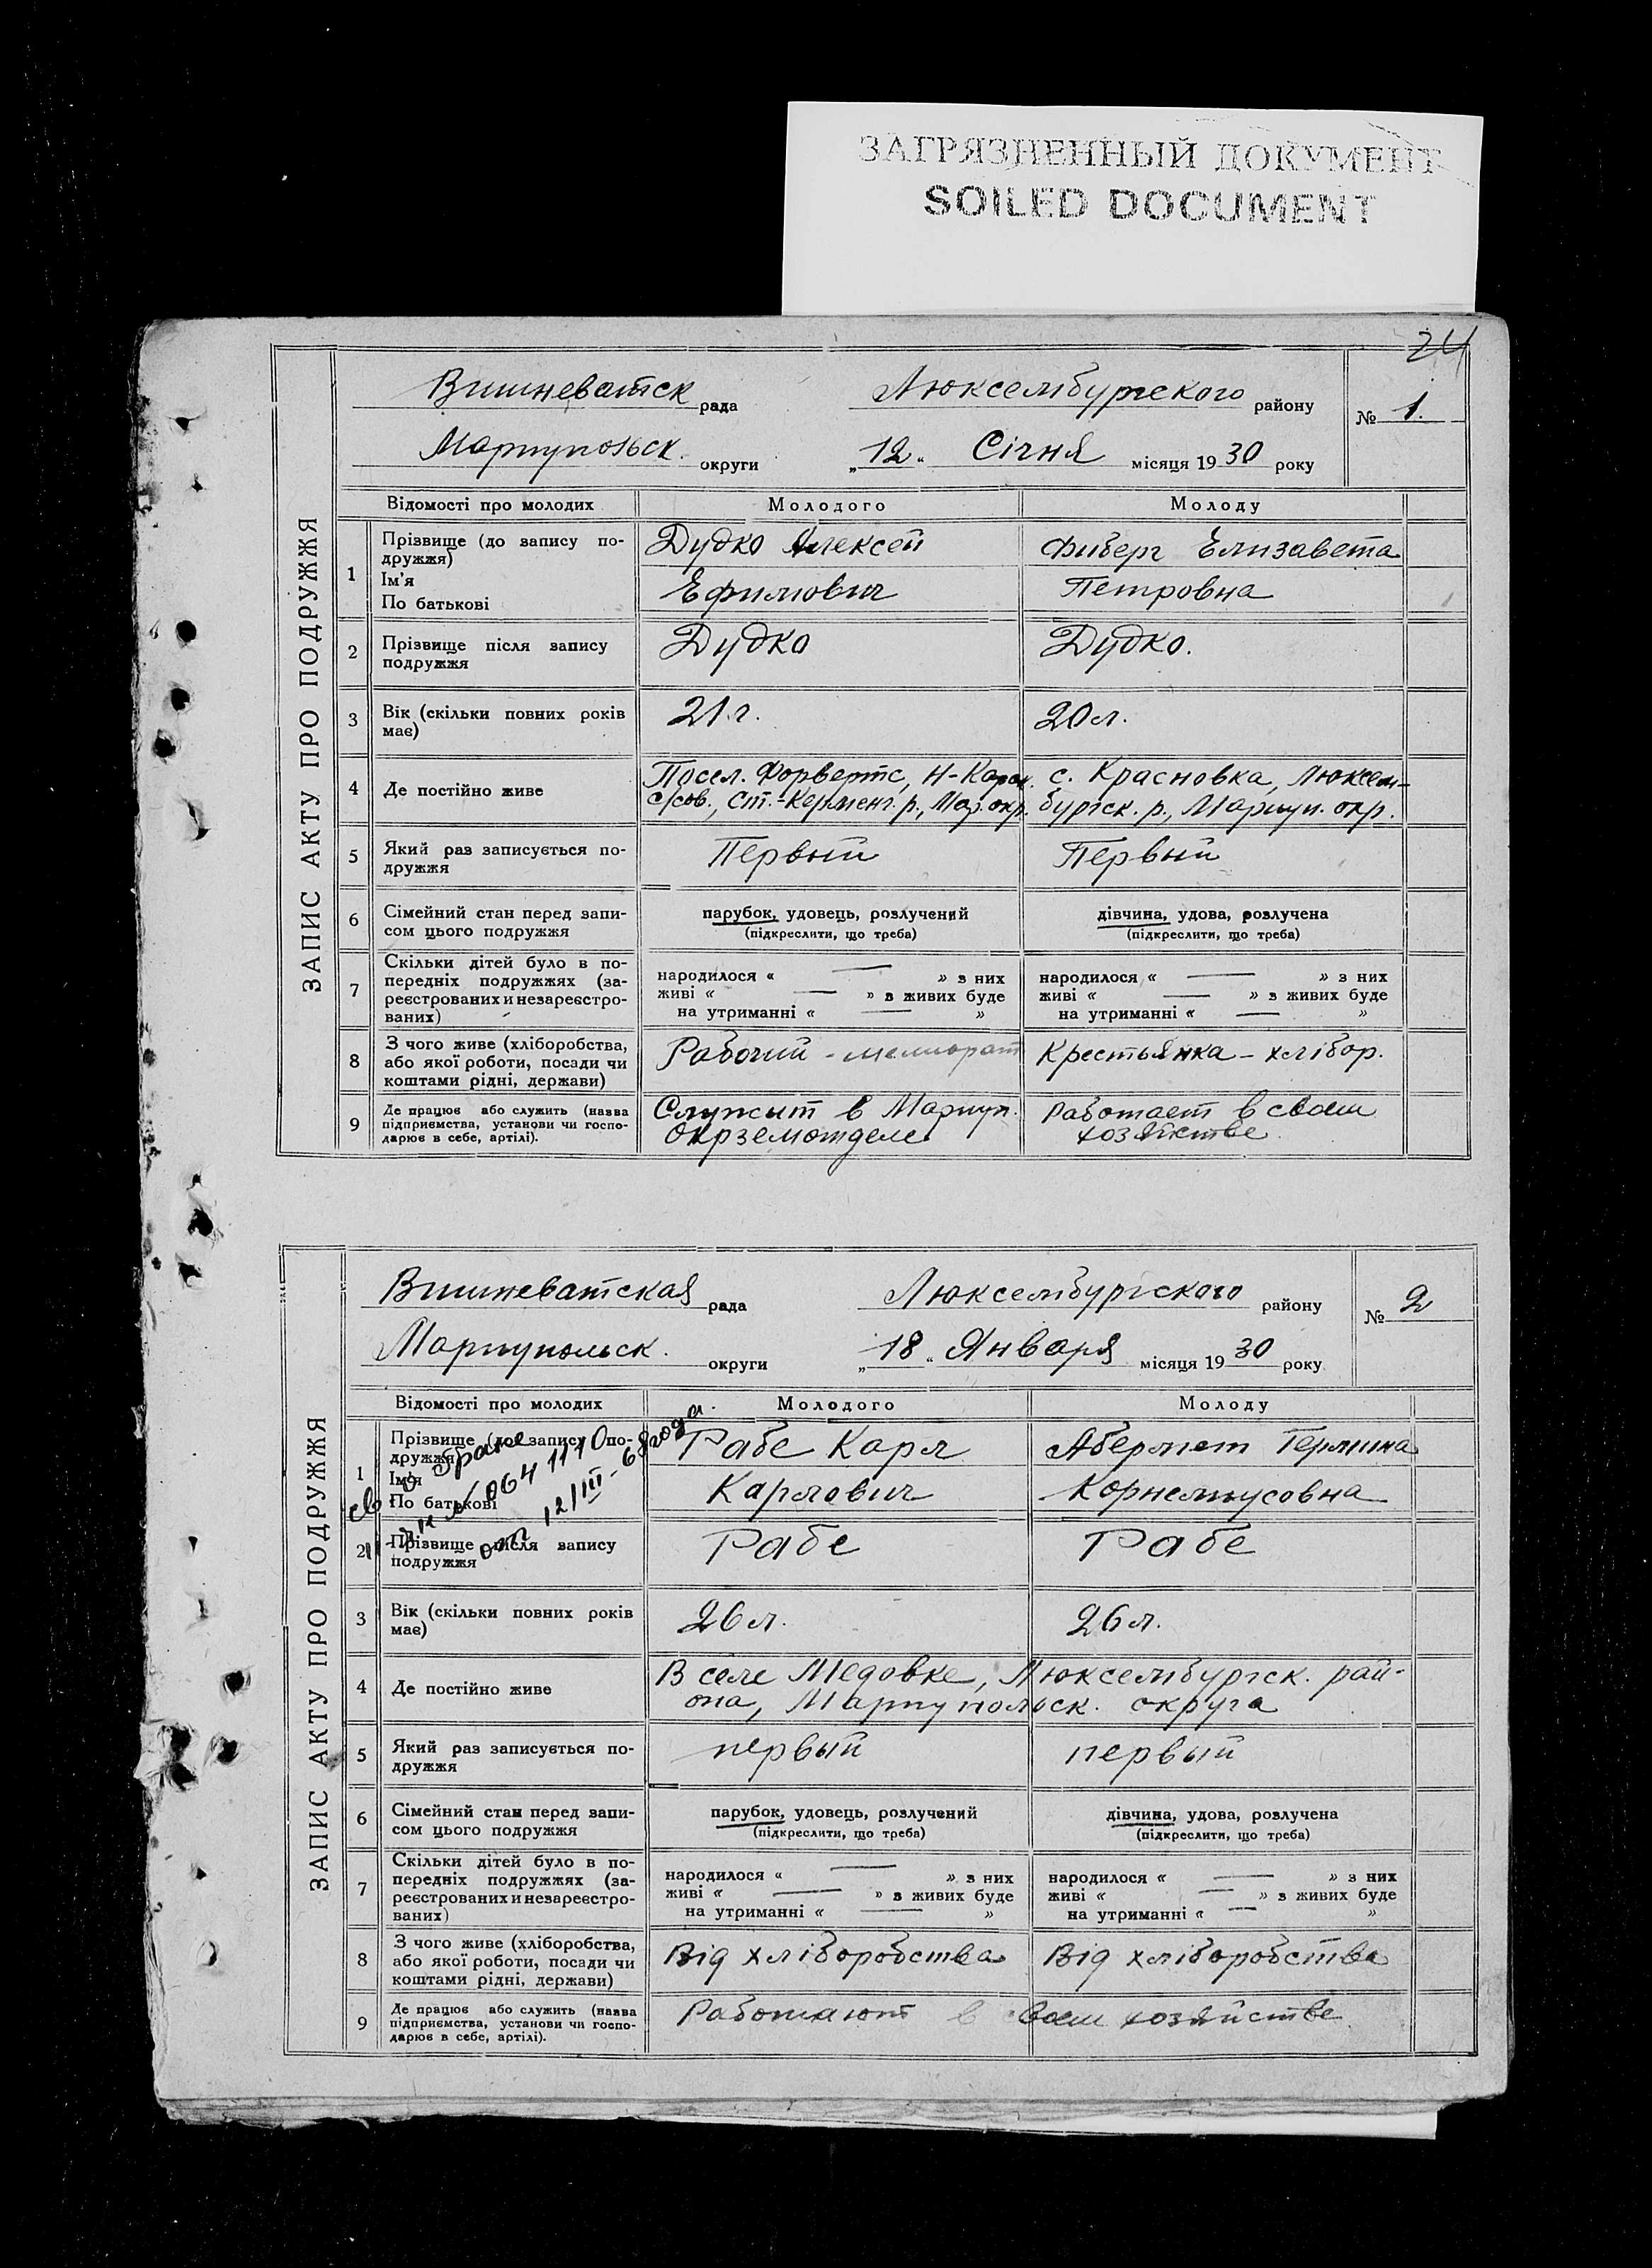 ЗАГРЯЗНЕННЫЙ ДОКУМЕНТ
SOILED DOCUMENT
24
ЗАПИС АКТУ ПРО ПОДРУЖЖЯ
Вишневатск рада Люксембургского району № 1.
Мариупольск. округи „12“ Січня місяця 1930 року
Відомості про молодих Молодого Молоду
1 Прізвище (до запису по-
дружжя)
Ім'я
По батькові
Дудко Алексей
Ефимович
Фиберг Елизавета
Петровна
2 Прізвище після запису
подружжя
Дудко
Дудко.
3 Вік (скільки повних років
має)
21.г.
20л.
4 Де постійно живе
Посел. Форвертс, Н-Каран.
с/сов., Ст.-Керменч. р., Мар. окр.
с. Красновка, Люксем-
бургск. р., Мариуп. окр.
5 Який раз записується по-
дружжя
Первый
Первый
6 Сімейний стан перед запи-
сом цього подружжя
парубок, удовець, розлучений
(підкреслити, що треба)
дівчина, удова, розлучена
(підкреслити, що треба)
7 Скільки дітей було в по-
передніх подружжях (за-
реєстрованих и незареєстро-
ваних)
народилося « — » з них
живі « — » з живих буде
на утриманні « — »
народилося « — » з них
живі « — » з живих буде
на утриманні « — »
8 З чого живе (хліборобства,
або якої роботи, посади чи
коштами рідні, держави)
Рабочий - мелиорат
Крестьянка - хлібор.
9 Де працює або служить (назва
підприємства, установи чи госпо-
дарює в себе, артілі).
Служит в Мариуп.
Окрземотделе
Работает в своем
хозяйстве.
ЗАПИС АКТУ ПРО ПОДРУЖЖЯ
Вишневатская рада Люксембургского району № 2
Мариупольск. округи „18“ Января місяця 1930 року
Відомості про молодих Молодого Молоду
1 Прізвище (до запису по-
дружжя)
Ім'я
По батькові
св о браке
№ 064 1110
от 12/III-68 года.
Рабе Карл
Карлович
Абермет Гермина
Корнелиусовна
2 Прізвище після запису
подружжя
Рабе
Рабе
3 Вік (скільки повних років
має)
26л.
26л.
4 Де постійно живе
В селе Медовке, Люксембургск. рай-
она, Мариупольск. округа
5 Який раз записується по-
дружжя
первый
первый
6 Сімейний стан перед запи-
сом цього подружжя
парубок, удовець, розлучений
(підкреслити, що треба)
дівчина, удова, розлучена
(підкреслити, що треба)
7 Скільки дітей було в по-
передніх подружжях (за-
реєстрованих и незареєстро-
ваних)
народилося « — » з них
живі « — » з живих буде
на утриманні « — »
народилося « — » з них
живі « — » з живих буде
на утриманні « — »
8 З чого живе (хліборобства,
або якої роботи, посади чи
коштами рідні, держави)
Від хліборобства
Від хліборобства
9 Де працює або служить (назва
підприємства, установи чи госпо-
дарює в себе, артілі).
Работают в своем хозяйстве.